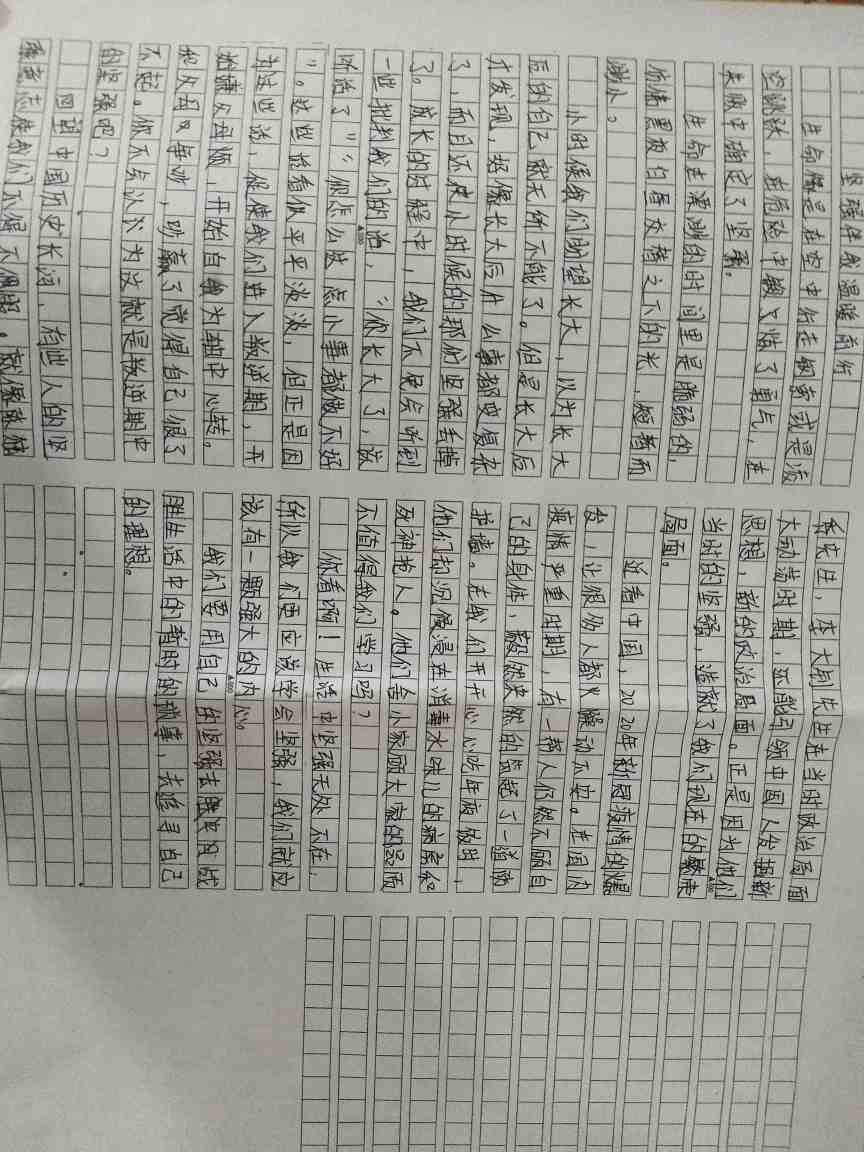 坚强伴我温暖前行
生命像是在空中你走钢索或是凌
空跳跃，在危险中锻炼了勇气，在
失败中确定了坚强。
生命在漫漫的时间里是脆弱的，
仿佛黑夜白昼交替之下的光，短暂而
渺小。
小时候我们盼望长大，以为长大
后的自己就无所不能了。但是长大后
才发现，好像长大后什么事都变复杂
了，而且还使小时候的那份坚强丢掉
了。成长的过程中，我们不便会听到
一些批判我们的话，“你长大了，该
听话了”“你怎么这点小事都做不好
”。这些话看似平平淡淡，但正是因
为这些话，促使我们进入叛逆期，开
始嫌父母烦，开始自我为轴中心转。
和父母吵每吵，吵赢了觉得自己很了
不起。你不会认为这就是叛逆期中
的坚强吧？
回望中国历史长河，有些人的坚
强意志使我们不得不佩服。就像张桂
陈先生，李大钊先生在当时政治局面
大动荡时期，还能引领中国人发掘新
思想，新的政治局面。正是因为他们
当时的坚强，造就了我们现在的繁荣
局面。
近看中国，2020年新冠疫情的爆
发，让很多人都火燥动不安。在国内
疫情严重时期，有一群人仍然不顾自
己的身体，毅然决然的筑起了一道防
护墙。在我们开开心心吃年夜饭时，
他们却沉侵浸在消毒水味儿的病房和
死神抢人。他们舍小家顾大家的品质
不值得我们学习吗？
你看啊！生活中坚强无处不在，
所以我们更应该学会坚强，我们就应
该有一颗强大的内心。
我们要用自己的坚强去战胜
胜生活中的暂时的执事，去追寻自己
的理想。